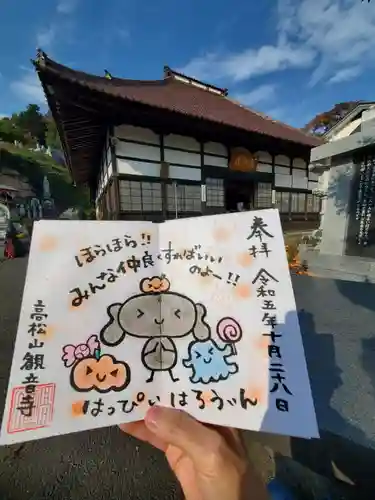 奉拝
令和五年十月二八日
ほらほら!!
みんな仲良くすればいい
のよー!!
高松山 観音寺
はっぴぃはろうぃん